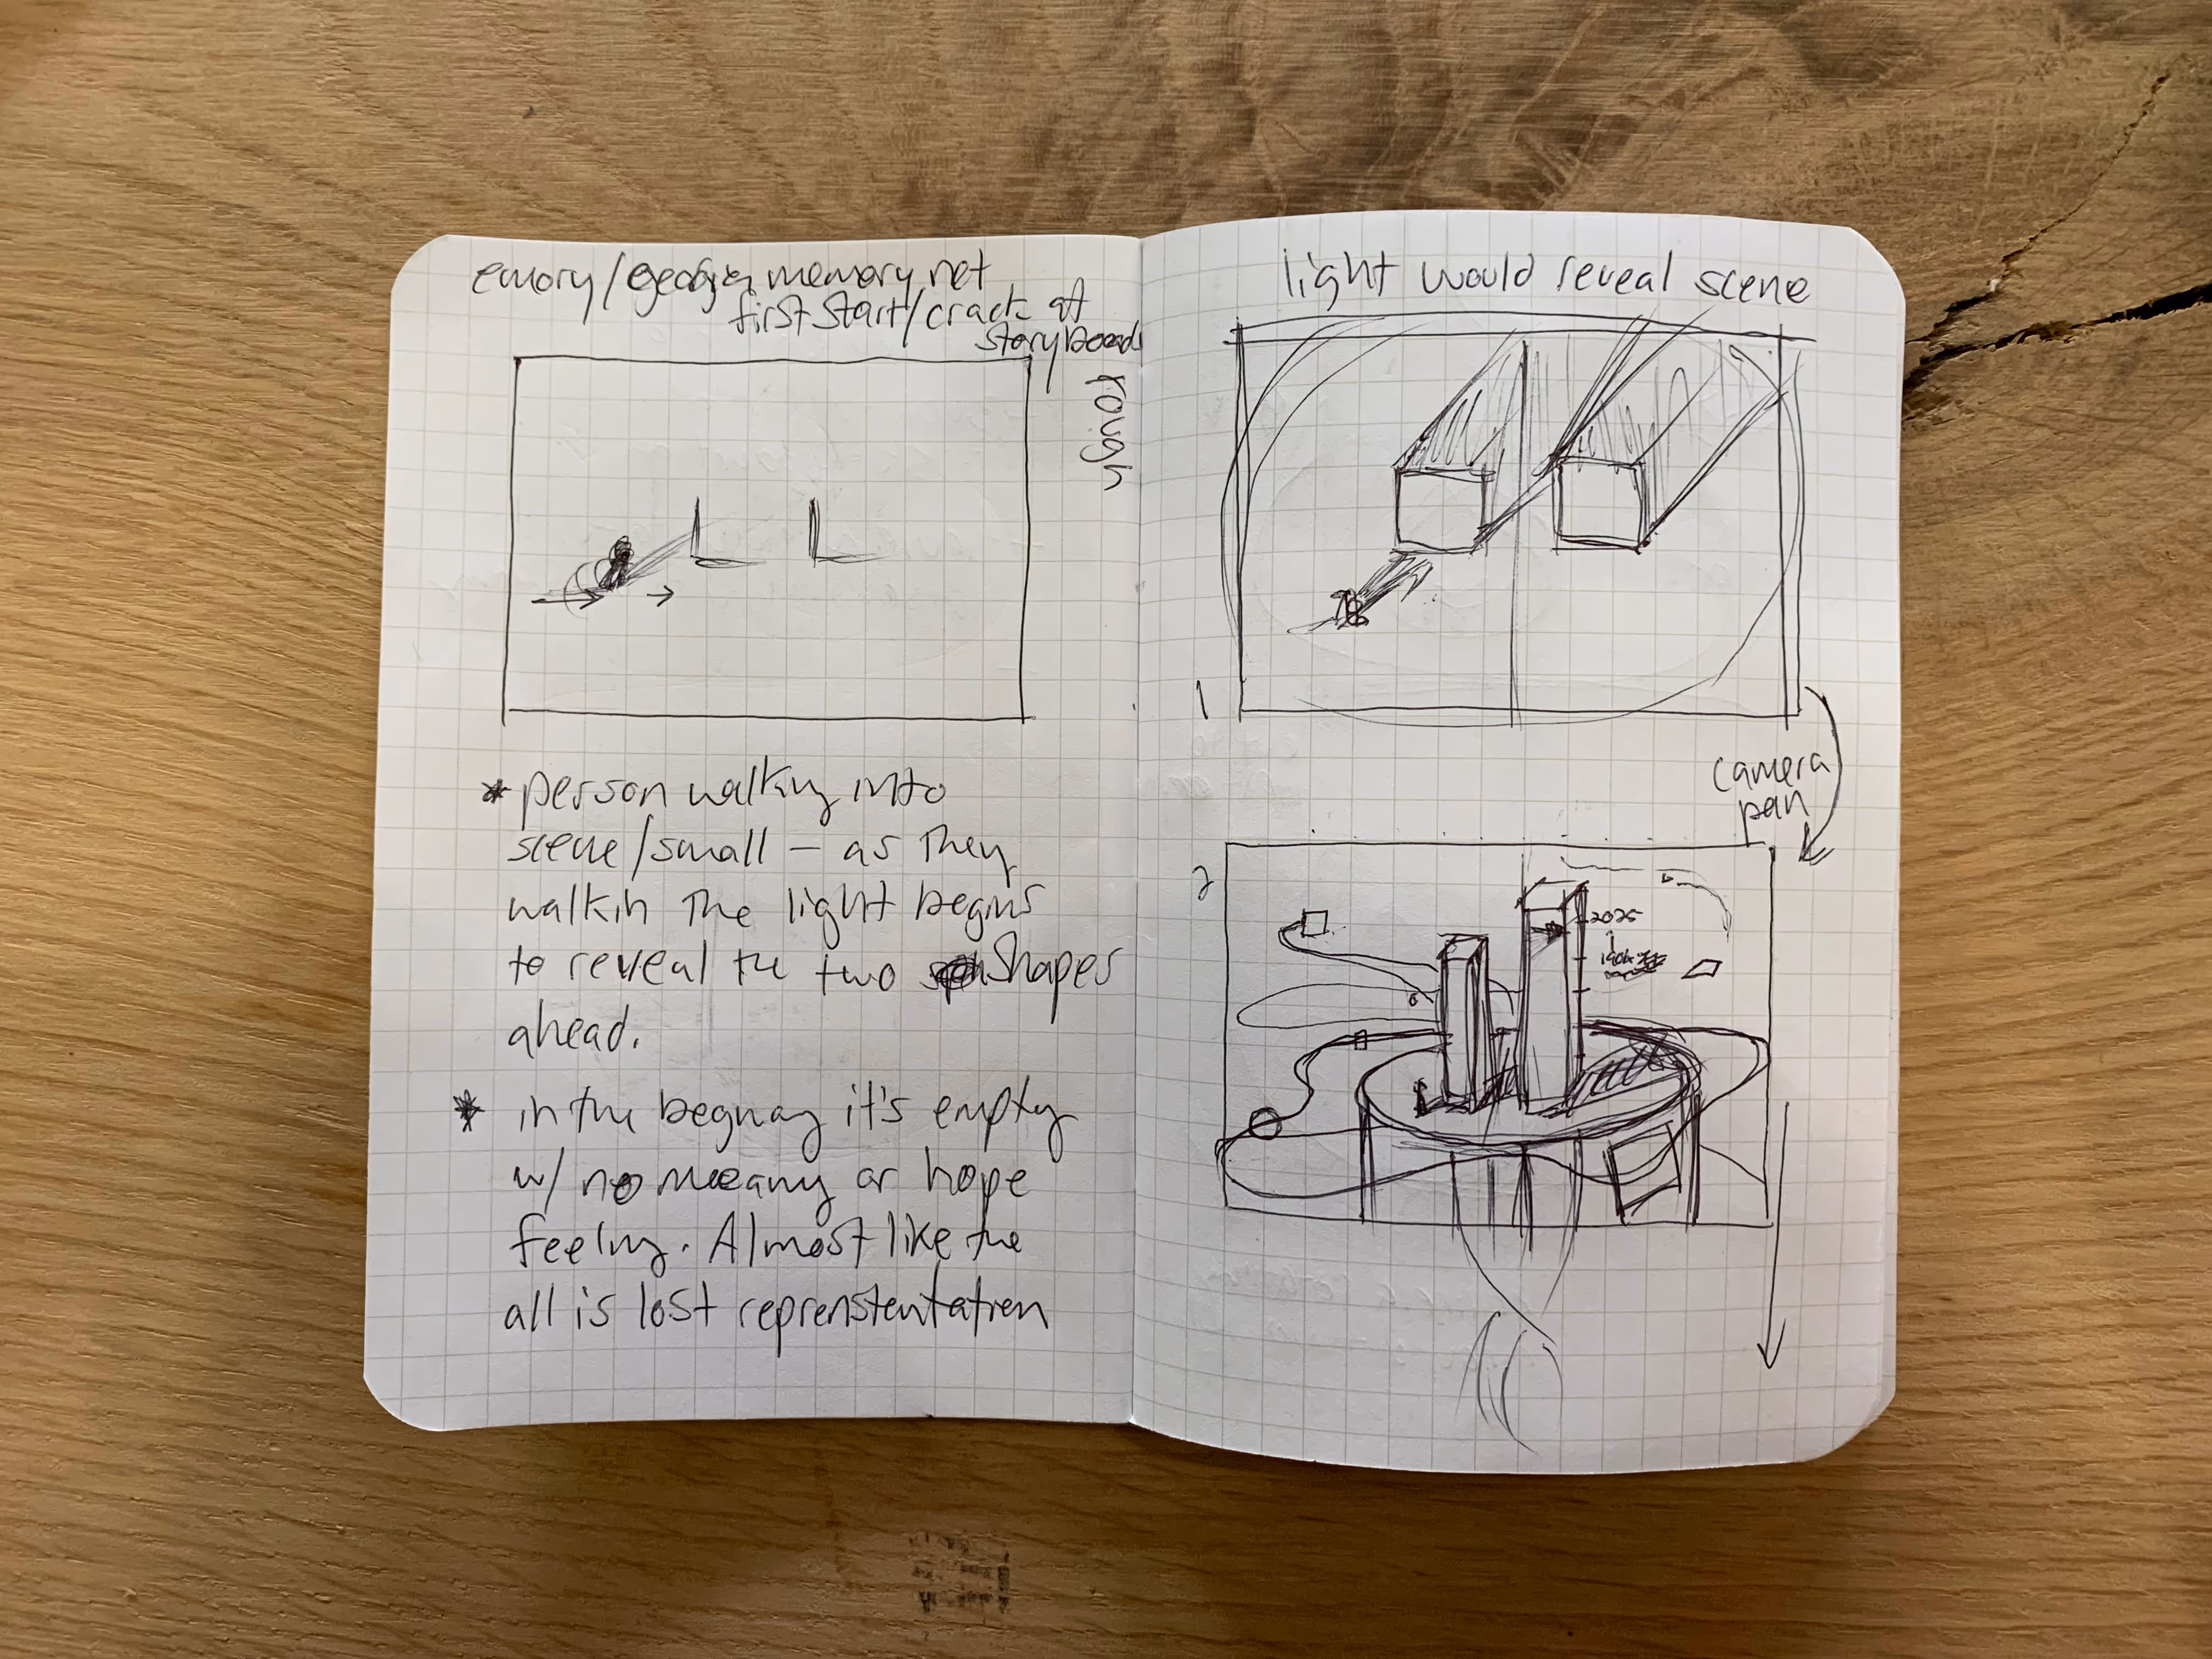 emory/georgia memory net
first start/crack at
storyboards
rough
* person walking into
scene/small — as they
walkin the light begins
to reveal the two shapes
ahead.
* in the begnay it's empty
w/ no meeany or hope
feeling. Almost like the
all is lost reprenstentatien
light would reveal scene
1
camera
pan
2
2025